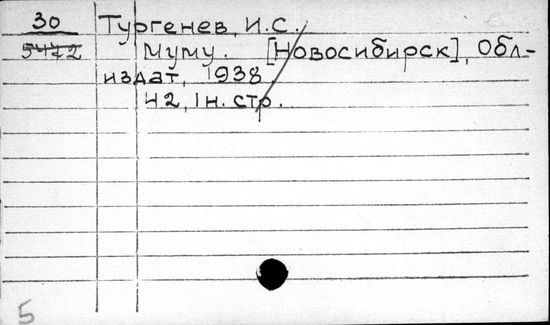 30 Тургенев, И.С.
5472 Муму. [Новосибирск], Обл-
издат, 1938
42, 1 н. стр.
5